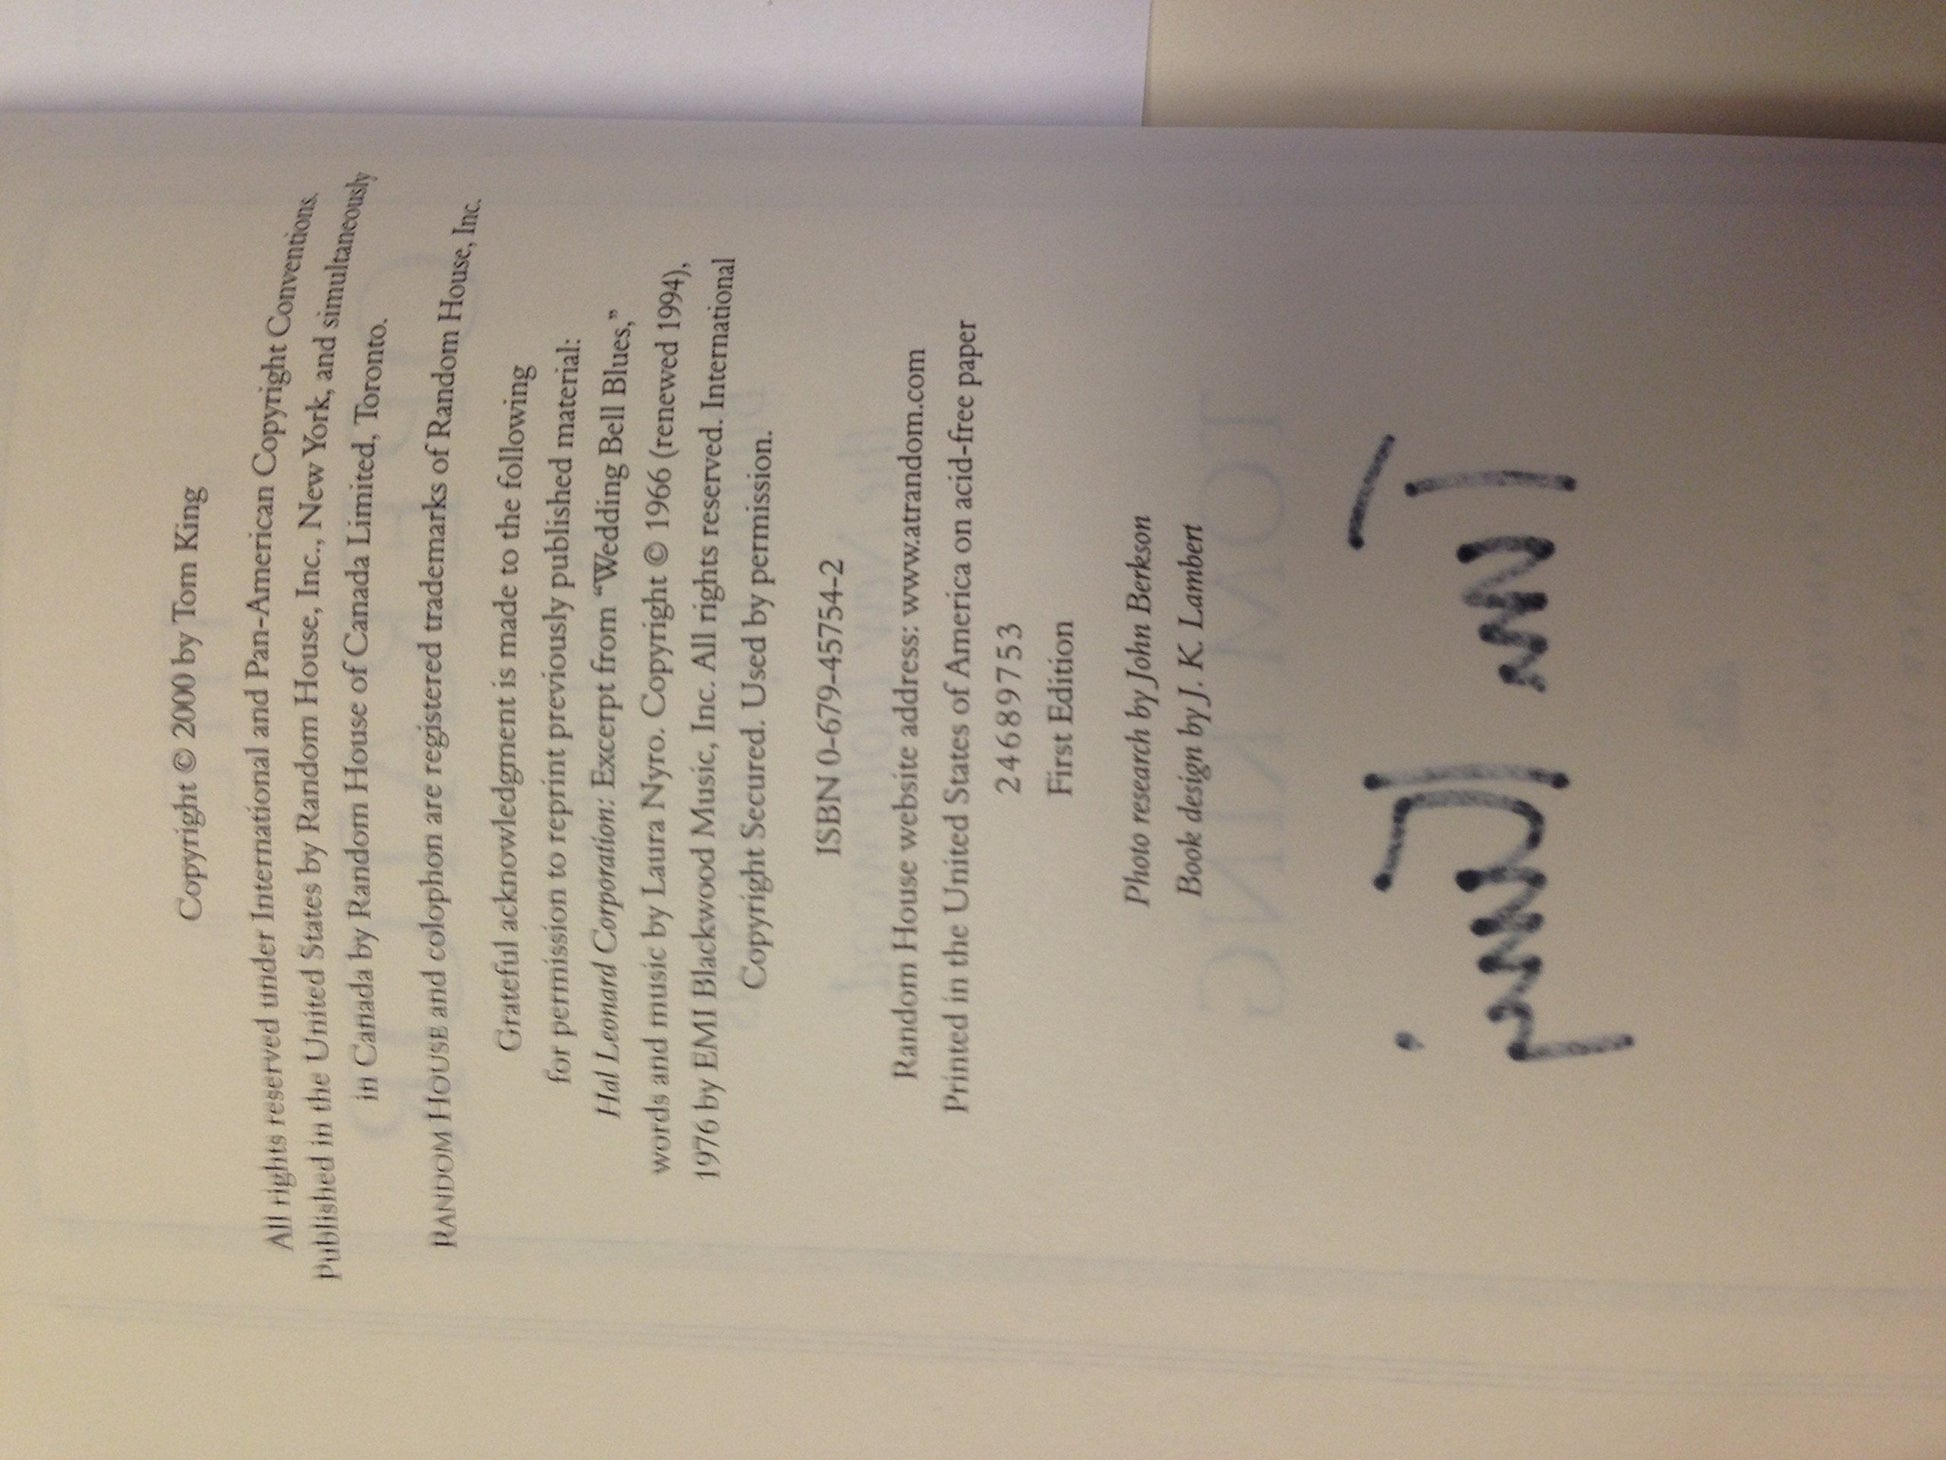 Copyright © 2000 by Tom King
All rights reserved under International and Pan-American Copyright Conventions.
Published in the United States by Random House, Inc., New York, and simultaneously
in Canada by Random House of Canada Limited, Toronto.
RANDOM HOUSE and colophon are registered trademarks of Random House, Inc.
Grateful acknowledgment is made to the following
for permission to reprint previously published material:
Hal Leonard Corporation: Excerpt from “Wedding Bell Blues,”
words and music by Laura Nyro. Copyright © 1966 (renewed 1994),
1976 by EMI Blackwood Music, Inc. All rights reserved. International
Copyright Secured. Used by permission.
ISBN 0-679-45754-2
Random House website address: www.atrandom.com
Printed in the United States of America on acid-free paper
24689753
First Edition
Photo research by John Berkson
Book design by J. K. Lambert